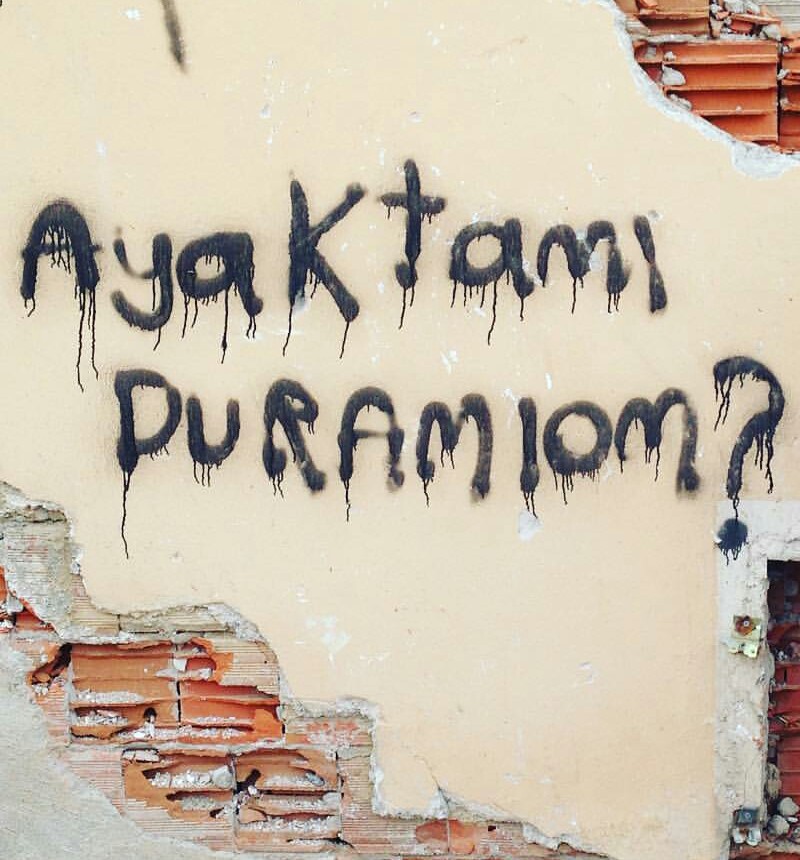 Ayaktamı
DURAMIOM?